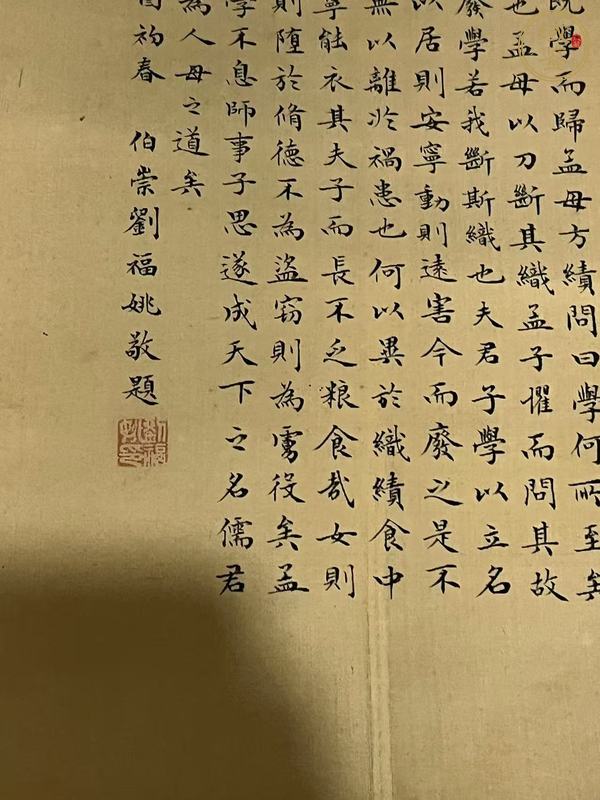 既學而歸孟母方績問曰學何所至矣
也孟母以刀斷其織孟子懼而問其故
廢學若我斷斯織也夫君子學以立名
以居則安寧動則遠害今而廢之是不
無以離於禍患也何以異於織績食中
寧能衣其夫子而長不乏粮食哉女則
則堕於脩德不為盜竊則為虜役矣孟
學不息師事子思遂成天下之名儒君
為人母之道矣
初春 伯崇劉福姚敬題
劉福姚印